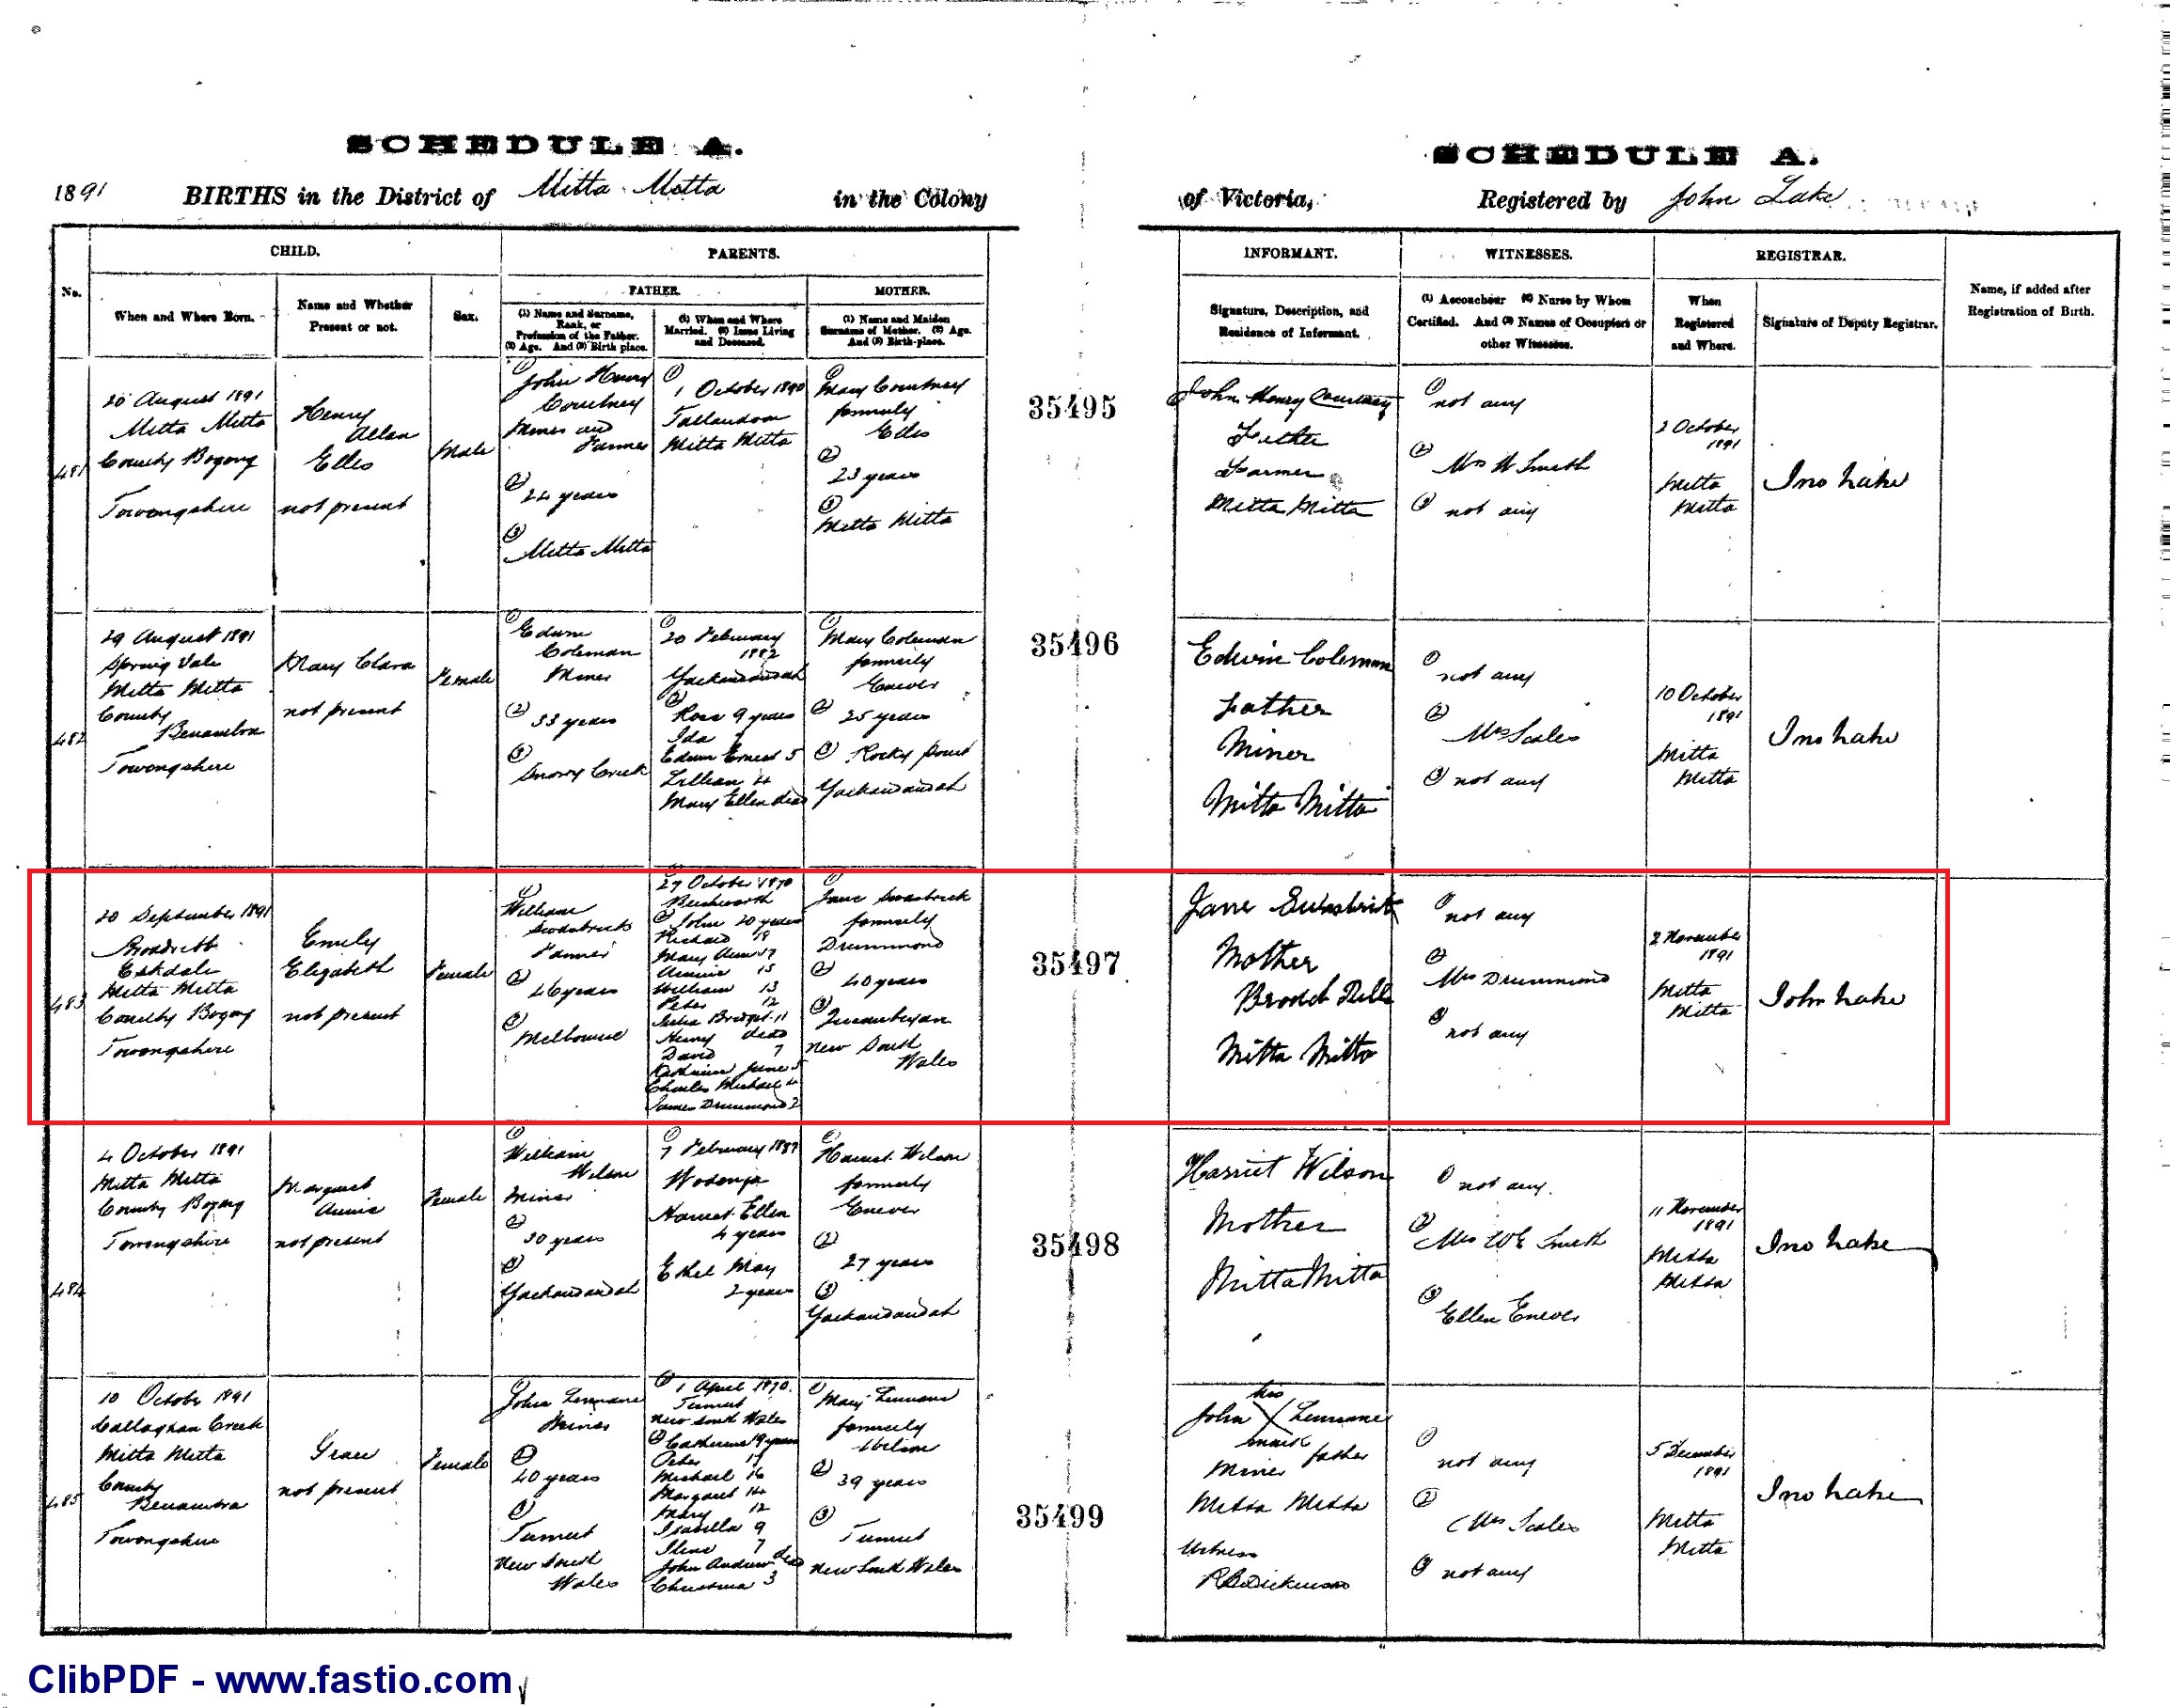 SCHEDULE A.
SCHEDULE A.
1891 BIRTHS in the District of Mitta Mitta in the Colony
of Victoria, Registered by John Lake
No.
CHILD.
When and Where Born.
Name and Whether
Present or not.
Sex.
PARENTS.
FATHER.
(1) Name and Surname,
Rank, or
Profession of the Father.
(2) Age. And (3) Birth place.
(1) When and Where
Married. (2) Issue Living
and Deceased.
MOTHER.
(1) Name and Maiden
Surname of Mother. (2) Age.
And (3) Birth-place.
INFORMANT.
Signature, Description, and
Residence of Informant.
WITNESSES.
(1) Accoucheur (2) Nurse by Whom
Certified. And (3) Names of Occupiers or
other Witnesses.
REGISTRAR.
When
Registered
and Where.
Signature of Deputy Registrar.
Name, if added after
Registration of Birth.
481
20 August 1891
Mitta Mitta
County Bogong
Towongshire
Henry
Allan
Elles
not present
Male
(1)
John Henry
Courtney
Miner and
Farmer
(2)
24 years
(3)
Mitta Mitta
(1)
1 October 1890
Tallandoon
Mitta Mitta
(1)
Mary Courtney
formerly
Elles
(2)
23 years
(3)
Mitta Mitta
35495
John Henry Courtney
Father
Farmer
Mitta Mitta
(1) not any
(2) Mrs W Smith
(3) not any
2 October
1891
Mitta
Mitta
Jno Lake
482
29 August 1891
Spring Vale
Mitta Mitta
County
Benambra
Towongshire
Mary Clara
not present
Female
(1)
Edwin
Coleman
Miner
(2)
33 years
(3)
Snowy Creek
(1)
20 February
1882
Yackandandah
(2)
Rose 9 years
Ida 7
Edwin Ernest 5
Lillian 4
Mary Ellen dead
(1)
Mary Coleman
formerly
Enever
(2) 25 years
(3) Rocky Point
Yackandandah
35496
Edwin Coleman
Father
Miner
Mitta Mitta
(1)
not any
(2)
Mrs Scales
(3) not any
10 October
1891
Mitta
Mitta
Jno Lake
483
20 September 1891
Eskdale
Mitta Mitta
County Bogong
Towongshire
Emily
Elizabeth
not present
Female
(1)
William
Swasbrick
Farmer
(2)
46 years
(3)
Melbourne
(1)
27 October 1870
Beechworth
(2) John 20 years
Richard 19
Mary Ann 17
Annie 15
William 13
Peter 12
Julia Bridget 11
Henry dead
David 7
Jane 5
Charles Michael 4
James Drummond 2
(1)
Jane Swasbrick
formerly
Drummond
(2)
40 years
(3)
Queanbeyan
New South
Wales
35497
Jane Swasbrick
Mother
Mitta Mitta
(1) not any
(2)
Mrs Drummond
(3)
not any
2 November
1891
Mitta
Mitta
John Lake
484
4 October 1891
Mitta Mitta
County Bogong
Towongshire
Margaret
Annie
not present
Female
(1)
William
Wilson
Miner
(2)
30 years
(3)
Yackandandah
(1)
7 February 1887
Wodonga
Harriet Ellen
4 years
Ethel May
2 years
(1)
Harriet Wilson
formerly
Enever
(2)
27 years
(3)
Yackandandah
35498
Harriet Wilson
Mother
Mitta Mitta
(1) not any.
(2)
Mrs W E Smith
(3)
Ellen Enever
11 November
1891
Mitta
Mitta
Jno Lake
485
10 October 1891
Callaghan Creek
Mitta Mitta
County
Benambra
Towongshire
Grace
not present
Female
(1)
John Lennane
Miner
(2)
40 years
(3)
Tumut
New South
Wales
(1) 1 April 1870.
Tumut
New South Wales
(2) Catherine 19 years
Peter 17
Michael 16
Margaret 14
Mary 12
Isabella 9
7
John Andrew dead
Christina 3
(1)
Mary Lennane
formerly
Wilson
(2)
39 years
(3)
Tumut
New South Wales
35499
his
John X Lennane
mark father
Miner
Mitta Mitta
Witness
R B Dickinson
(1)
not any
(2)
Mrs Scales
(3) not any
5 December
1891
Mitta
Mitta
Jno Lake
ClibPDF - www.fastio.com